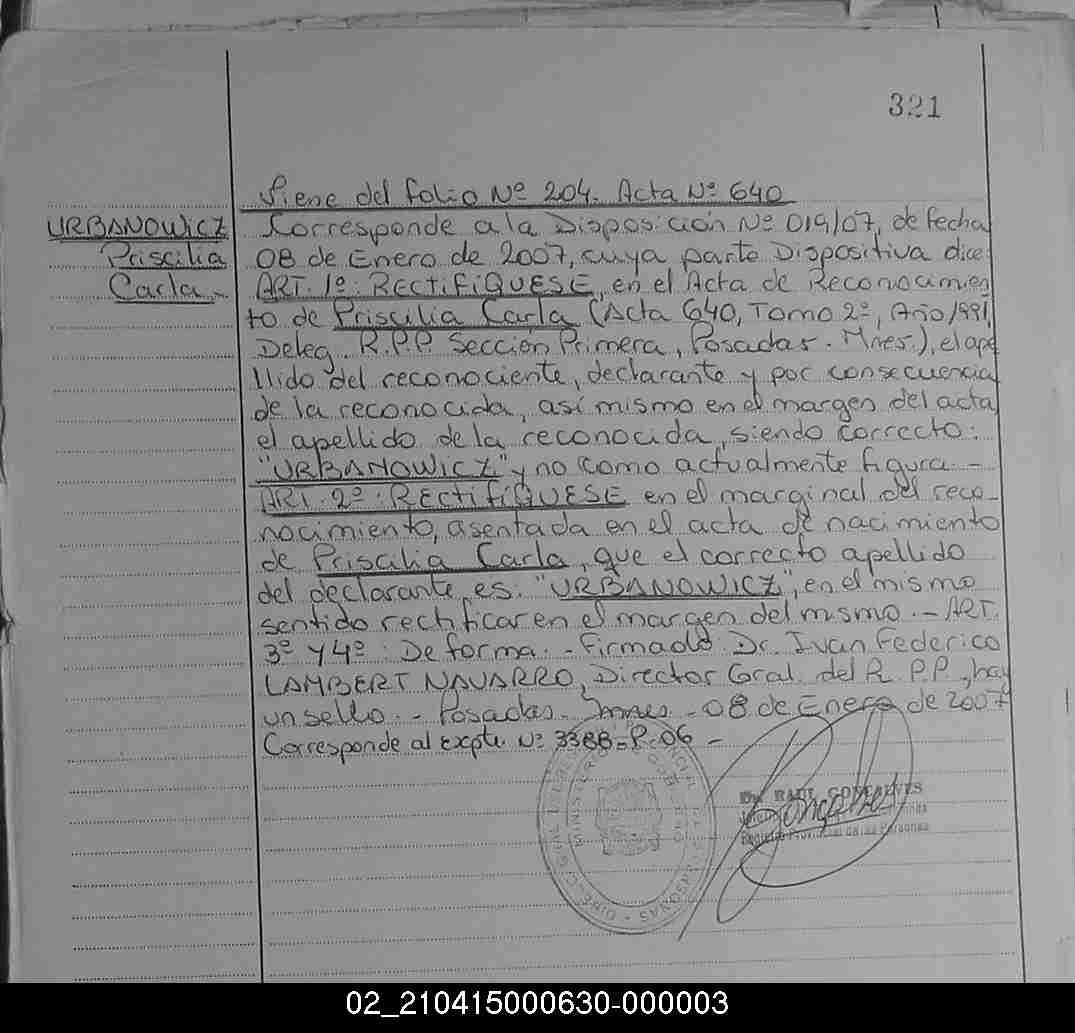 321
Viene del folio Nº 204. Acta Nº 640
URBANOWICZ
Priscilia
Carla
Corresponde a la Disposición Nº 019/07, de fecha
08 de Enero de 2007, cuya parte Dispositiva dice:
ART. 1º: RECTIFIQUESE, en el Acta de Reconocimien
to de Priscilia Carla (Acta 640, Tomo 2º, Año 1991,
Deleg. R.P.P. Sección Primera, Posadas. Mnes.), el ape
llido del reconociente, declarante y por consecuencia
de la reconocida, asi mismo en el margen del acta
el apellido de la reconocida, siendo correcto:
"URBANOWICZ" y no como actualmente figura.-
ART. 2º: RECTIFIQUESE en el marginal del reco-
nocimiento, asentada en el acta de nacimiento
de Priscilia Carla, que el correcto apellido
del declarante, es: "URBANOWICZ", en el mismo
sentido rectificar en el margen del mismo.- ART.
3º y 4º: De forma.- Firmado: Dr. Ivan Federico
LAMBERT NAVARRO, Director Gral. del R.P.P., hay
un sello.- Posadas- -08 de Enero de 2007
Corresponde al Expte. Nº 3388-P-06-
RAUL GONCALVES
Registro Provincial de las Personas
02_210415000630-000003